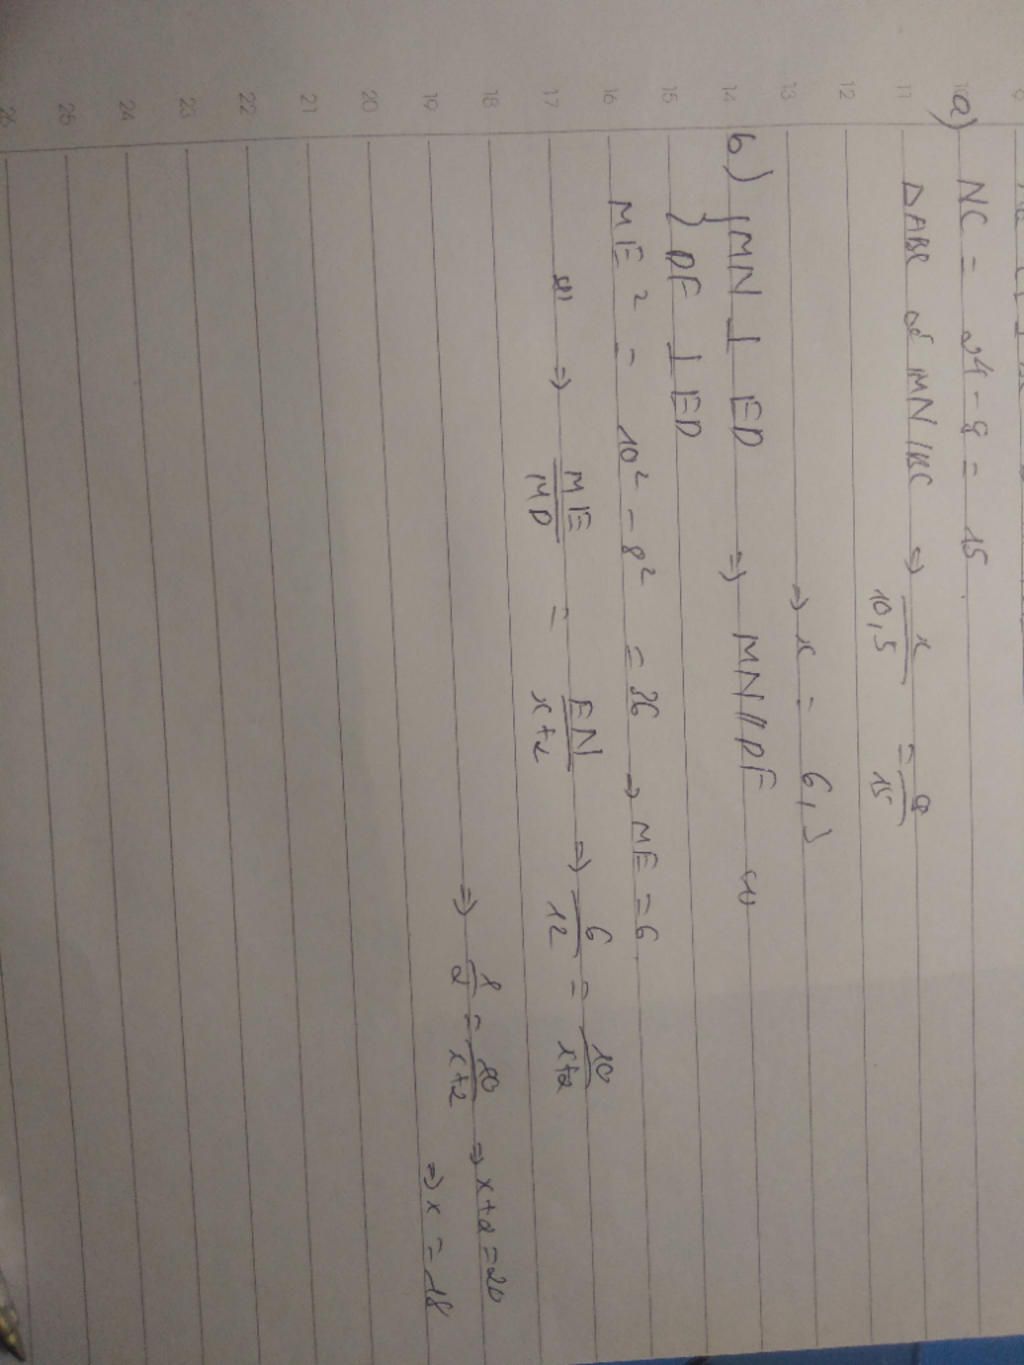 a) NC = 24 - 9 = 15
ΔABC có MN // BC => x/10,5 = 9/15
=> x = 6,3
b) { MN ⊥ ED => MN // DF
DF ⊥ ED
ME² = 10² - 8² = 36 => ME = 6
=> ME/MD = EN/x+2 => 6/12 = 10/x+2
=> 1/2 = 10/x+2 => x+2 = 20
=> x = 18
9
10
11
12
13
14
15
16
17
18
19
20
21
22
23
24
25
26